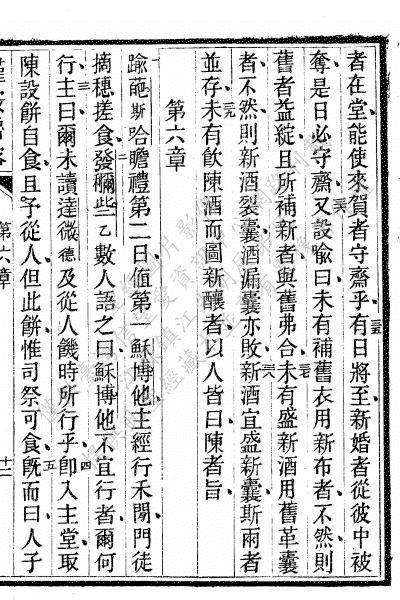 者在堂能使來賀者守齋乎有日將至新婚者從彼中被
奪是日必守齋又設喻曰未有補舊衣用新布者不然則
舊者益綻且所補新者與舊弗合未有盛新酒用舊革囊
者不然則新酒裂囊酒漏囊亦敗新酒宜盛新囊斯兩者
並存未有飲陳酒而圖新釀者以人皆曰陳者旨
第六章
踰葩斯哈瞻禮第二日值第一穌博他主經行禾閒門徒
摘穗搓食發𠾛些乙數人語之曰穌博他不宜行者爾何
行主曰爾未讀達微德及從人饑時所行乎卽入主堂取
陳設餅自食且予從人但此餅惟司祭可食旣而曰人子
第六章
十二